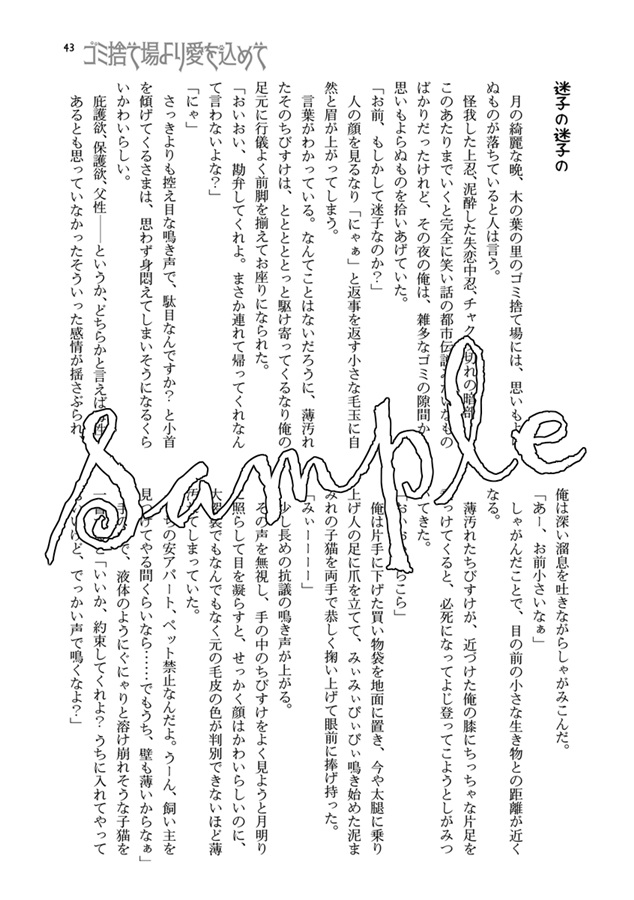 43
ゴミ捨て場より愛を込めて
迷子の迷子の
月の綺麗な晩、木の葉の里のゴミ捨て場には、思いもよ
ぬものが落ちていると人は言う。
怪我した上忍、泥酔した失恋中忍、チャク 切れの暗部
このあたりまでいくと完全に笑い話の都市伝説 いなもの
ばかりだったけれど、その夜の俺は、雑多なゴミの隙間か
思いもよらぬものを拾いあげていた。
「お前、もしかして迷子なのか?」
人の顔を見るなり「にゃぁ」と返事を返す小さな毛玉に自
然と眉が上がってしまう。
言葉がわかっている。なんてことはないだろうに、薄汚れ
たそのちびすけは、とととととっと駆け寄ってくるなり俺の
足元に行儀よく前脚を揃えてお座りになられた。
「おいおい、勘弁してくれよ。まさか連れて帰ってくれなん
て言わないよな?」
「にゃ」
さっきよりも控え目な鳴き声で、駄目なんですか? と小首
を傾げてくるさまは、思わず身悶えてしまいそうになるくら
いかわいらしい。
庇護欲、保護欲、父性――というか、どちらかと言えば 性
あるとも思っていなかったそういった感情が揺さぶられ
俺は深い溜息を吐きながらしゃがみこんだ。
「あー、お前小さいなぁ」
しゃがんだことで、目の前の小さな生き物との距離が近く
なる。
薄汚れたちびすけが、近づけた俺の膝にちっちゃな片足を
っけてくると、必死になってよじ登ってこようとしがみつ
いてきた。
らこら」
俺は片手に下げた買い物袋を地面に置き、今や太腿に乗り
上げ人の足に爪を立てて、みぃみぃぴぃぴぃ鳴き始めた泥ま
みれの子猫を両手で恭しく掬い上げて眼前に捧げ持った。
「みぃーーーー」
少し長めの抗議の鳴き声が上がる。
その声を無視し、手の中のちびすけをよく見ようと月明り
に照らして目を凝らすと、せっかく顔はかわいらしいのに、
大袈裟でもなんでもなく元の毛皮の色が判別できないほど薄
汚 てしまっていた。
ちの安アパート、ペット禁止なんだよ。うーん、飼い主を
見 けてやる間くらいなら……でもうち、壁も薄いからなぁ」
手の で、液体のようにぐにゃりと溶け崩れそうな子猫を
一 「いいか、約束してくれよ? うちに入れてやって
いいけど、でっかい声で鳴くなよ?」
sample